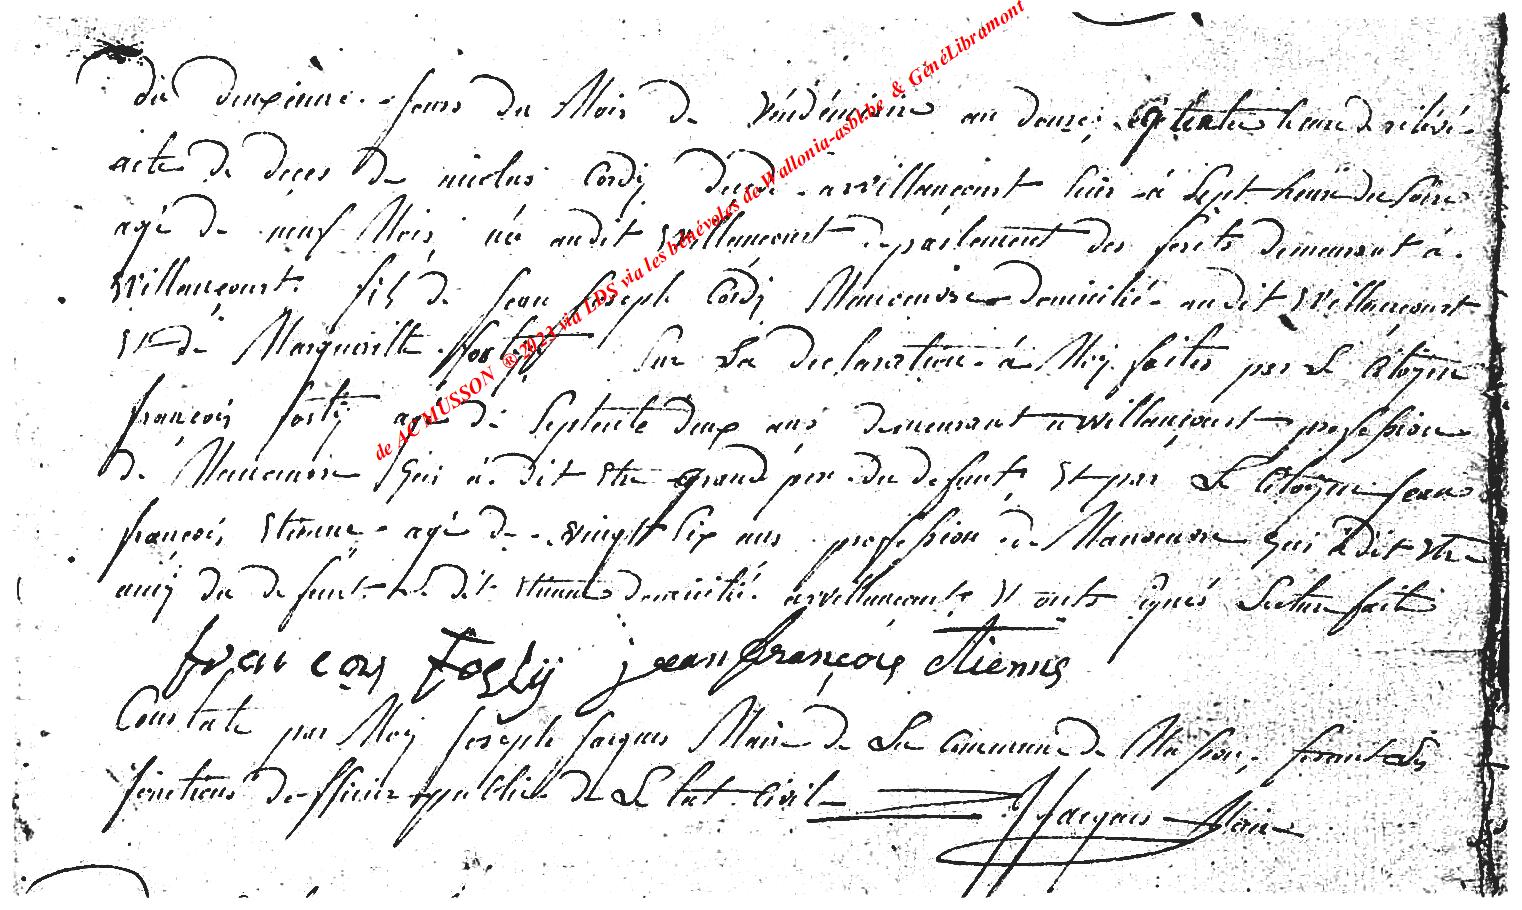 du deuxième jours du Mois de Vendémiaire an douze, quatre heure de relévé
acte de deces de nicolas Cordij décédé a Willancourt hier à Sept heure du soire
agé de neuf Mois, né audit Willancourt departement des forêts demeurant à
Willancourt fils de Jean Joseph Cordij Manoeuvre domicilié audit Willancourt
Et de Margueritte fostij Sur La declaration à Moÿ faite par Le Citoÿen
françois fostij agé de Septente deux ans demeurant a Willancourt profession
de Manoeuvre Qui à dit Etre grand pere du defunt Et par Le Citoÿen Jean
françois Etienne agé de vingt Six ans profession de Manoeuvre Qui à dit Etre
amij du defunt Le dit Etienne domicilié a Willancourt Et onts signés Lecture faite
francois Foslÿ jean françois etienne
Constaté par Moÿ Joseph Jacques Maire de La Commune de Musson, faisant Les
fonctions de officier publicque de Letat Civil JJacques Maire
de ACMUSSON ® 2023 via LDS via les bénévoles de Wallonia-asbl.be & GénéLibramont